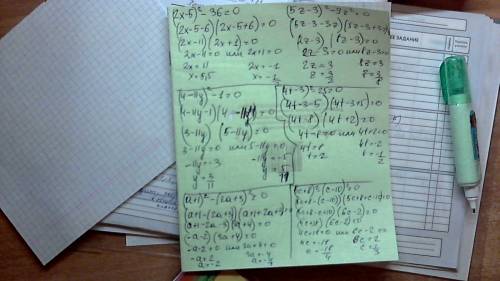 (2x-5)²-36=0
(2x-5-6)(2x-5+6)=0
(2x-11)(2x+1)=0
2x-11=0 или 2x+1=0
2x=11 2x=-1
x=5,5 x=-1/2
(5z-3)²-9z²=0
(5z-3-3z)(5z-3+3z)=0
(2z-3)(8z-3)=0
2z-3=0 или 8z-3=0
2z=3 8z=3
z=3/2 z=3/8
(4-11y)²-1=0
(3-11y)(5-11y)=0
3-11y=0 или 5-11y=0
-11y=-3 -11y=-5
y=3/11 y=5/11
(4t-3)²-25=0
(4t-3-5)(4t-3+5)=0
(4t-8)(4t+2)=0
4t-8=0 или 4t+2=0
4t=8 4t=-2
t=2 t=-1/2
(a+1)²-(2a+3)²=0
(-a-2)(3a+4)=0
-a-2=0 или 3a+4=0
-a=2 3a=-4
a=-2
(5c+8)²-(c-10)²=0
(4c+18)(6c-2)=0
4c+18=0 или 6c-2=0
4c=-18 6c=2
c=-18/4 c=1/3
ЗАДАНИЕ